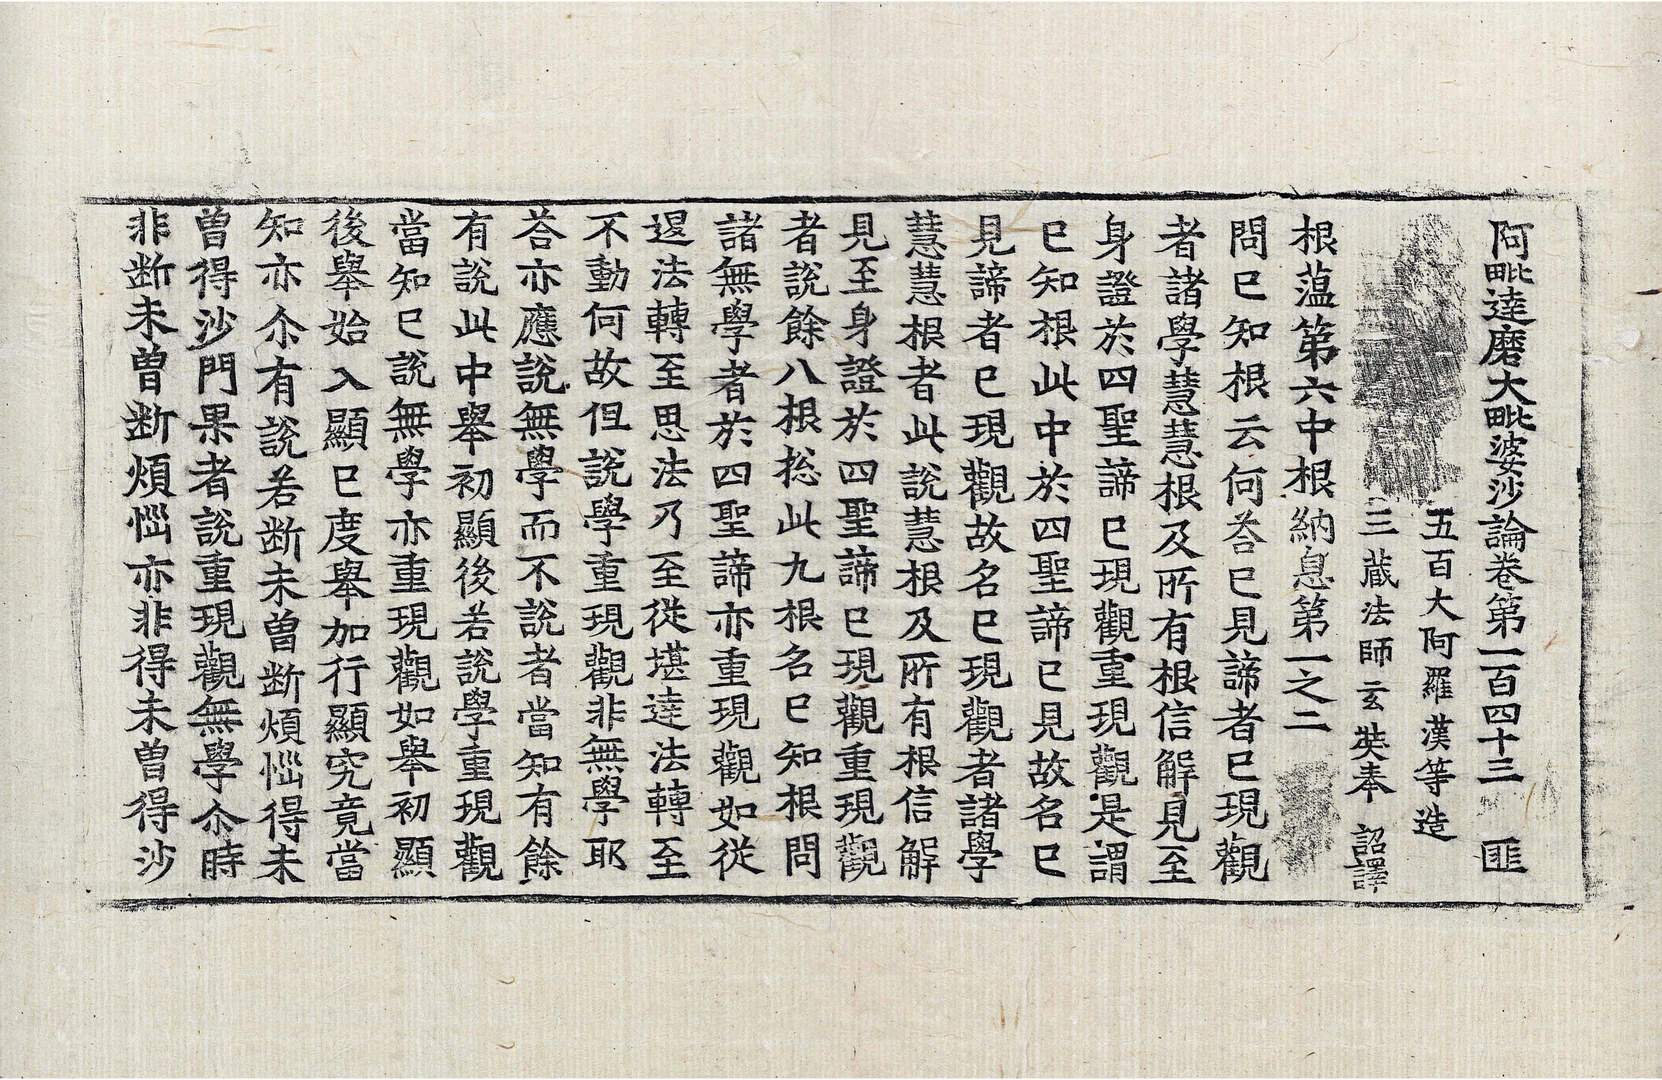 阿毗達磨大毗婆沙論卷第一百四十三　匪
五百大阿羅漢等造
三藏法師玄奘奉　詔譯
根蘊第六中根納息第一之二
問已知根云何荅已見諦者已現觀
者諸學慧慧根及所有根信解見至
身證於四聖諦已現觀重現觀是謂
已知根此中於四聖諦已見故名已
見諦者已現觀故名已現觀者諸學
慧慧根者此說慧根及所有根信解
見至身證於四聖諦已現觀重現觀
者說餘八根捴此九根名已知根問
諸無學者於四聖諦亦重現觀如從
退法轉至思法乃至從堪達法轉至
不動何故但說學重現觀非無學耶
荅亦應說無學而不說者當知有餘
有說此中舉初顯後若說學重現觀
當知已說無學亦重現觀如舉初顯
後舉始入顯已度舉加行顯究竟當
知亦尒有說若断未曾断煩惱得未
曾得沙門果者說重現觀無學尒時
非断未曾断煩惱亦非得未曾得沙